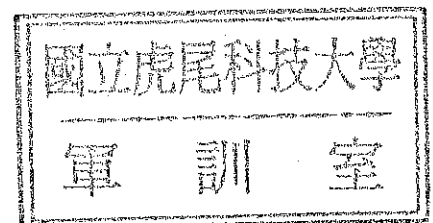 國立虎尾科技大學
軍訓室